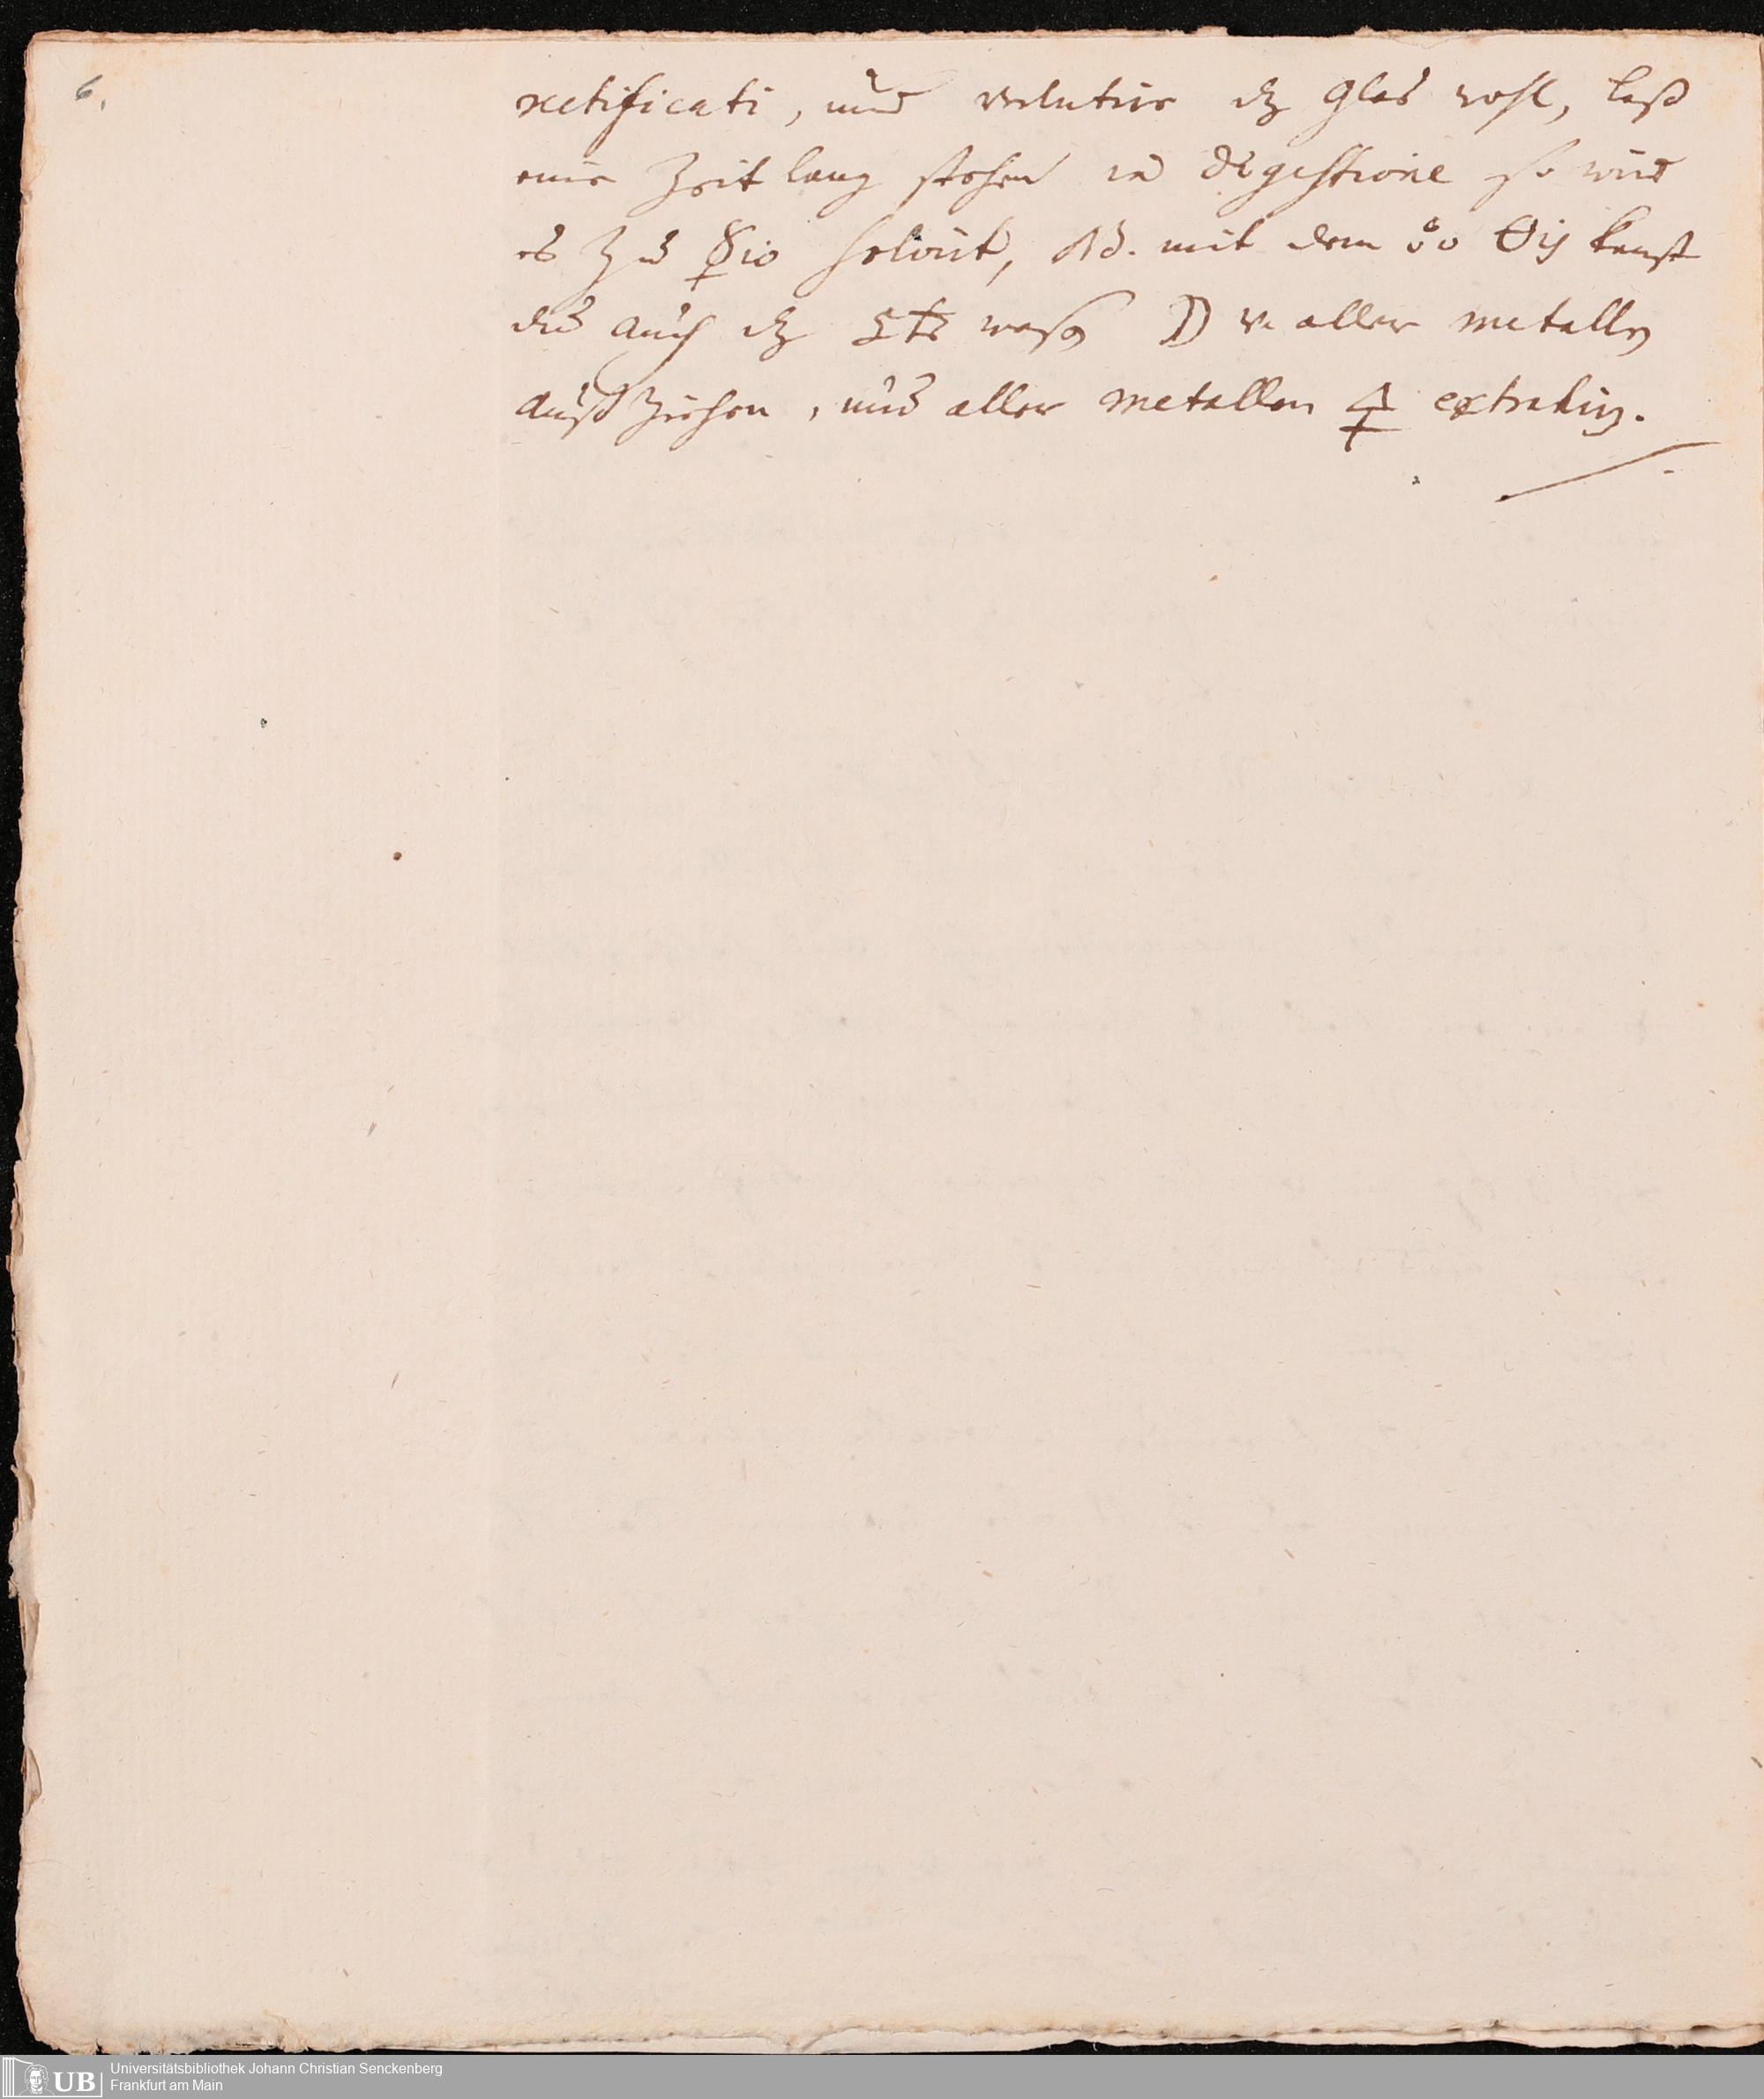 6.
rectificati, und verlutir dz Glas wohl, laß
eine Zeit lang stehen in digestione so wird
es zu ☿io solvirt, NB. mit dem ooo 🜔ij kanst
du auch dz ☽ v. aller metallen
auß ziehen, und aller metallen 🜍 extrahirn.
UB Universitätsbibliothek Johann Christian Senckenberg
Frankfurt am Main